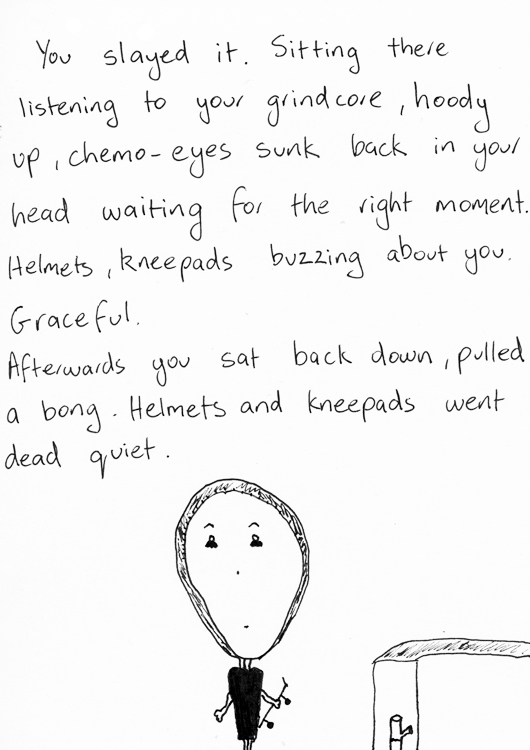 You slayed it. Sitting there
listening to your grindcore, hoody
up, chemo-eyes sunk back in your
head waiting for the right moment.
Helmets, kneepads buzzing about you.
Graceful.
Afterwards you sat back down, pulled
a bong. Helmets and kneepads went
dead quiet.